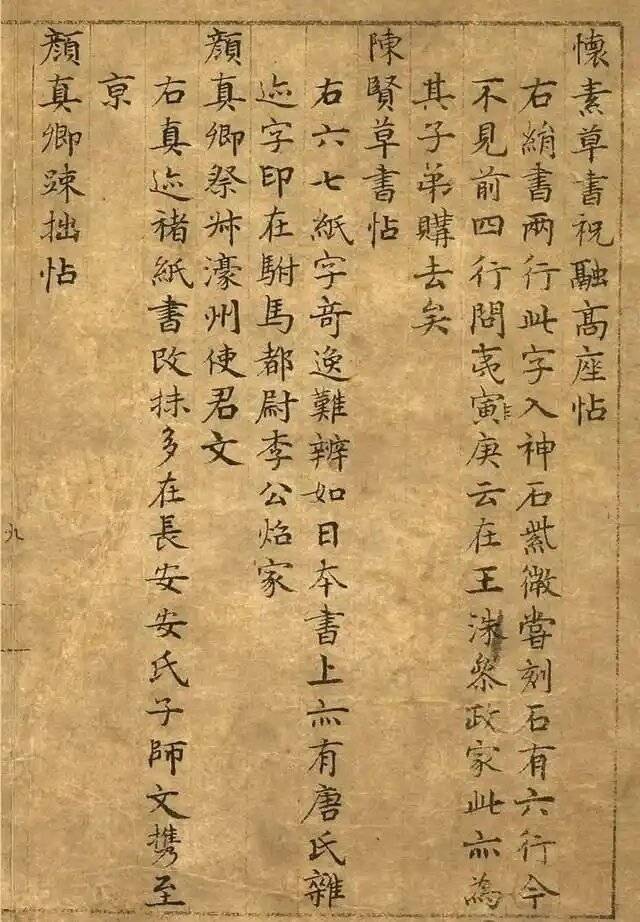 懷素草書祝融高座帖
右絹書兩行此字入神石紫微嘗刻石有六行今
不見前四行問夷寅庚云在王洙參政家此亦為
其子弟購去矣
陳賢草書帖
右六七紙字奇逸難辨如日本書上亦有唐氏雜
迹字印在駙馬都尉李公炤家
顏真卿祭姪濠州使君文
右真迹楮紙書改抹多在長安安氏子師文攜至
京
顏真卿疎拙帖
九